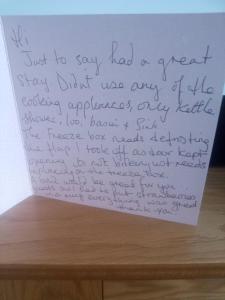 Hi
Just to say had a great
stay Didn't use any of the
cooking appliances, only kettle
shower, loo, basin & Sink.
The Freeze box needs defrosting
the flap I took off as door kept
opening so not needs
replaced on the freeze box.
A would be great for you
had to put strawberries
in a mug everything was great
thank you